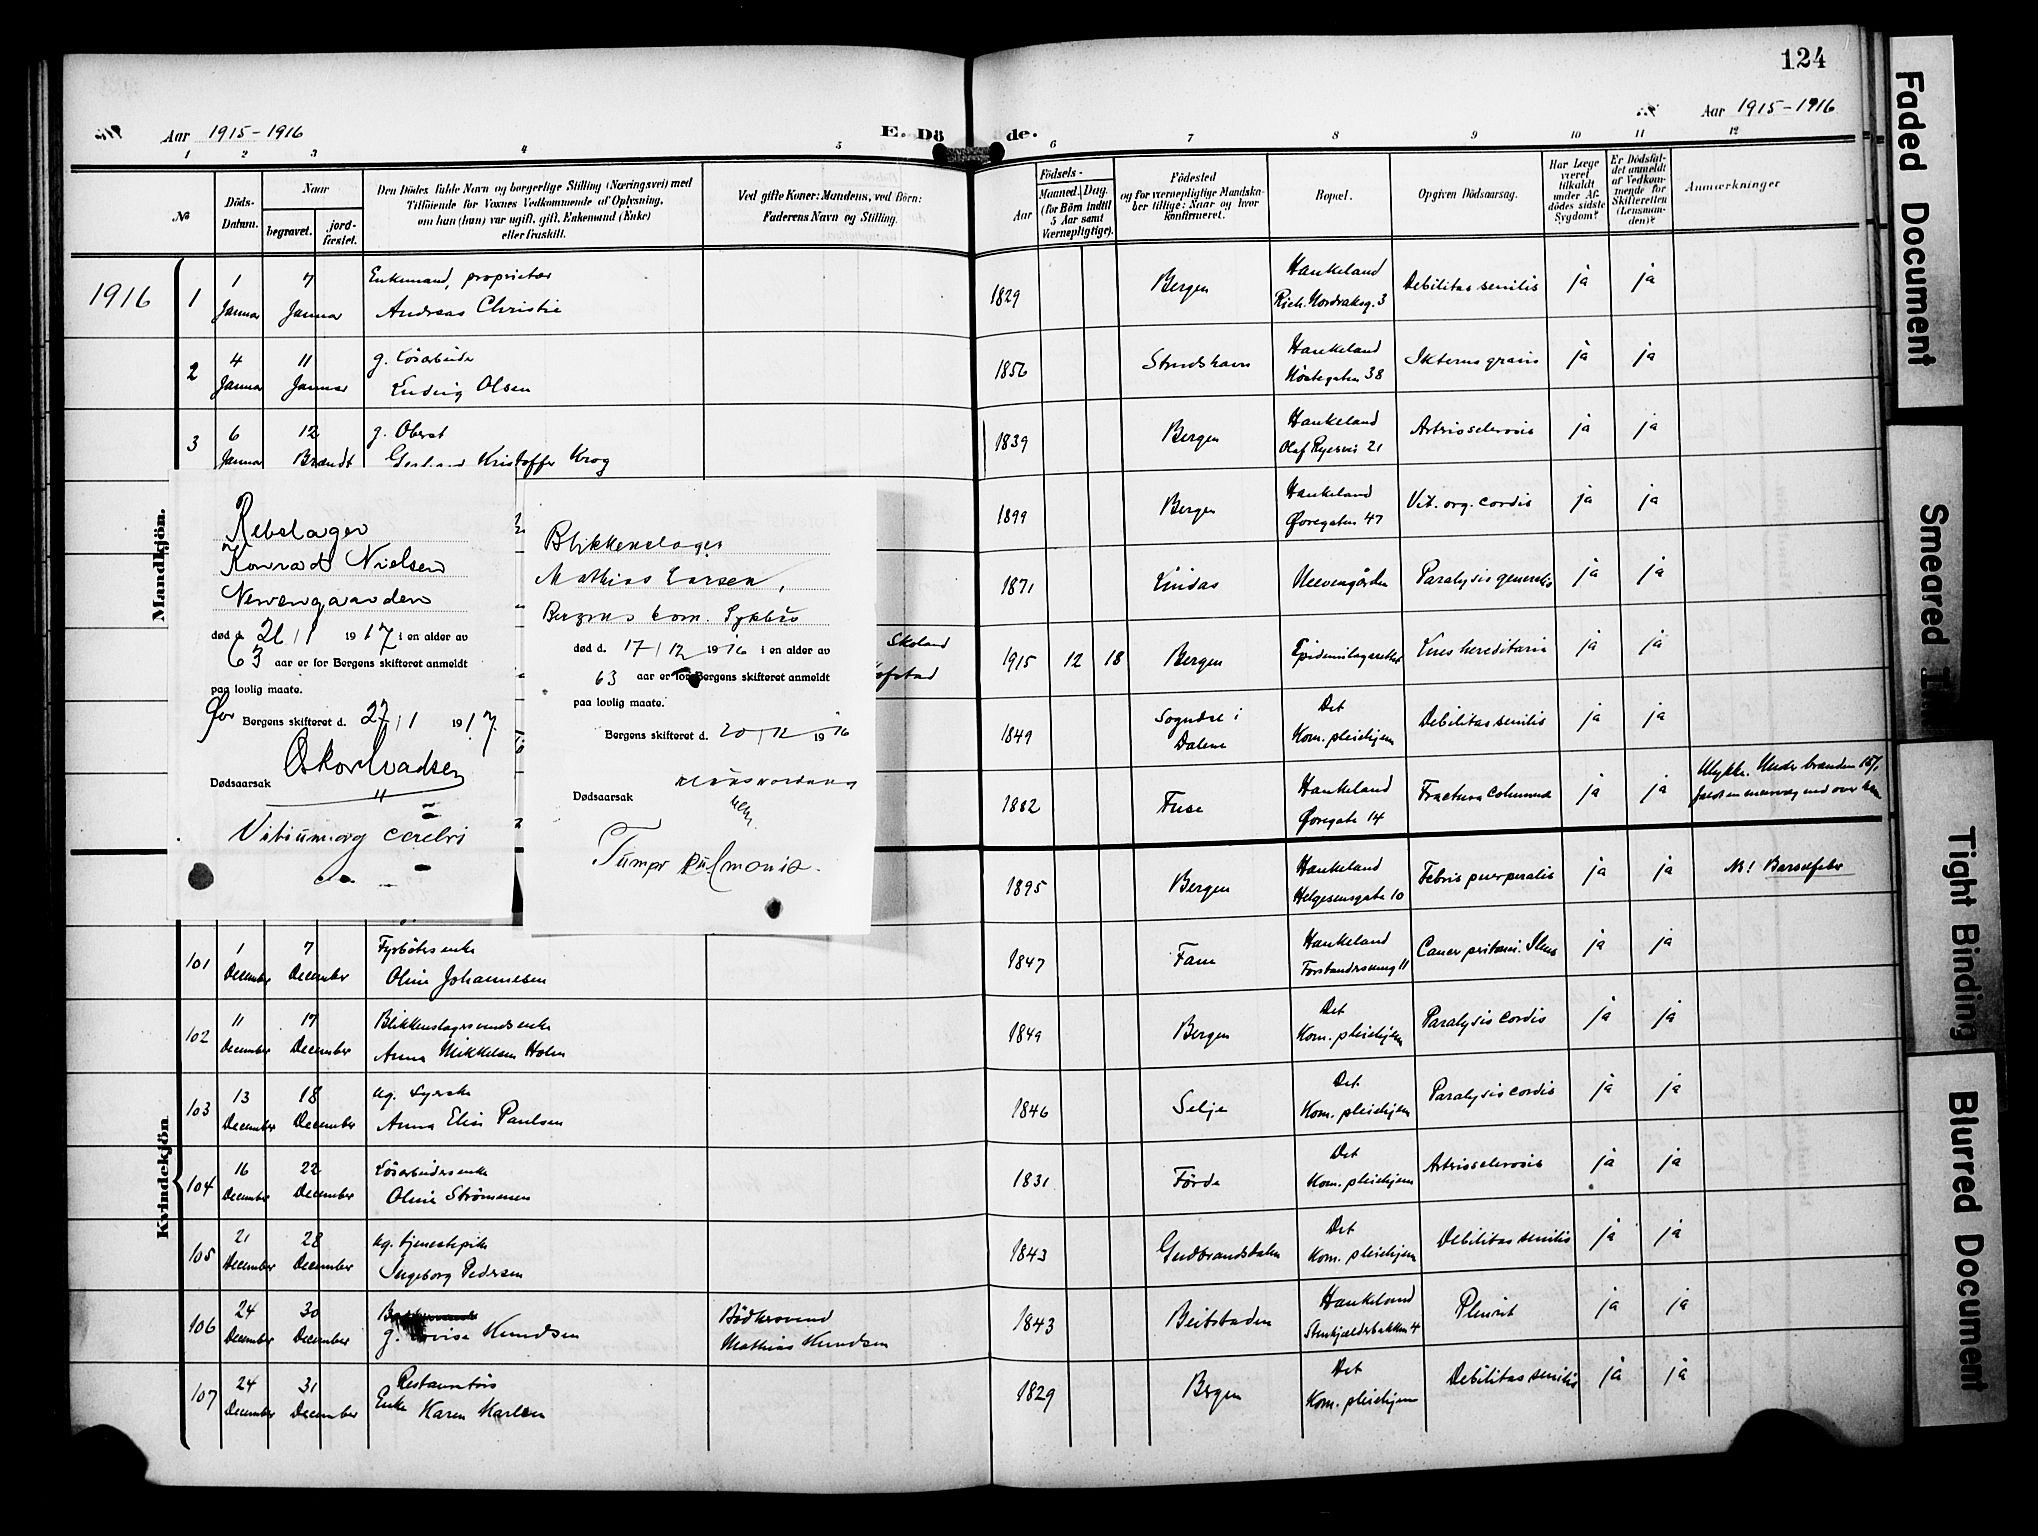 124
Aar 1915-1916
E. Dö de.
Aar 1915-1916
1 2 3 4 5 6 7 8 9 10 11 12
№
Döds-Datum.
Naar
begravet.
jord-fæstet.
Den Dödes fulde Navn og borgerlige Stilling (Næringsvei) med
Tilföiende for Voxnes Vedkommende af Oplysning,
om han (hun) var ugift, gift, Enkemand (Enke)
eller fraskilt.
Ved gifte Koner: Mandens, ved Börn:
Faderens Navn og Stilling.
Födsels-
Aar
Maaned.
Dag.
(for Börn indtil
5 Aar samt
Værnepligtige).
Födested
og for værnepligtige Mandska-
ber tillige: Naar og hvor
konfirmeret.
Bopæl.
Opgiven Dödsaarsag.
Har Læge
været
tilkaldt
under Af-
dödes sidste
Sygdom?
Er Dödsfal-
det anmeldt
af Vedkom-
mende for
Skifteretten
(Lensman-
den)?
Anmærkninger
1916
Mandkjön.
1 1 Januar 7 Januar Enkemand, proprietær Andreas Christie 1829 Bergen Haukeland Rich. Nordraksg. 3 Debilitas senilis ja ja
2 4 Januar 11 Januar g. Løsarbeider Ludvig Olsen 1856 Haukeland 38 Ikterus gravis ja ja
3 6 Januar 12 Brandt g. Oberst Gerhard Kristoffer Krog 1839 Bergen Haukeland Olaf Ryesvei 21 Arteriosclerosis ja ja
1899 Bergen Haukeland Øvregaten 47 Vit. org. cordis ja ja
1871 Lindås Neevengården Paralysis generalis ja ja
Skoland
1915 12 18 Bergen Epidemilazarettet Lues hereditaria ja ja
1849 Sogndal i Dalene Det Kom. pleiehjem Debilitas senilis ja ja
1882 Fuse Haukeland Øvregate 14 Fractura Columnae ja ja Ulykke. Under branden 15/1
1895 Bergen Haukeland Helgesensgate 10 Febris puerperalis ja ja NB! Barselfeber
Rebslager
Konrad Nielsen
Nevengaarden
død d. 21/1 1917 i en alder av
63 aar er for Bergens skifteret anmeldt
paa lovlig maate.
For Bergens skifteret d. 27/1 1917.
Dødsaarsak
Vitium org cerebri
Blikkenslager
Mathias Larsen,
Bergens kom. Sykhus
død d. 17/12 1916 i en alder av
63 aar er for Bergens skifteret anmeldt
paa lovlig maate.
Bergens skifteret d. 20/12 1916
Dødsaarsak
Tumor pulmonis.
Kvindekjön
101 1 December 7 December Fyrbøters enke Oline Johannesen 1847 Fane Haukeland Forstandersmug 11 Cancer peritonei. Ileus ja ja
102 11 December 17 December Blikkenslagersvends enke Anna Mikkelsen Holm 1849 Bergen Det Kom. pleiehjem Paralysis cordis ja ja
103 13 December 18 December ug. Syerske Anna Elise Paulsen 1846 Selje Det Kom. pleiehjem Paralysis cordis ja ja
104 16 December 22 December Løsarbeiders enke Oline Strømsnes 1831 Förde Det Kom. pleiehjem Arteriosclerosis ja ja
105 21 December 28 December ug. tjenestepike Ingeborg Pedersen 1843 Gudbrandsdalen Det Kom. pleiehjem Debilitas senilis ja ja
106 24 December 30 December g. Lovise Knudsen Bødkersvend Mathias Knudsen 1843 Beitstaden Haukeland Stenkjelderbakken 4 Pleurit ja ja
107 24 December 31 December Restauratørs Enke Karen Karlsen 1829 Bergen Det Kom. pleiehjem Debilitas senilis ja ja
Faded Document
Smeared
Tight Binding
Blurred Document